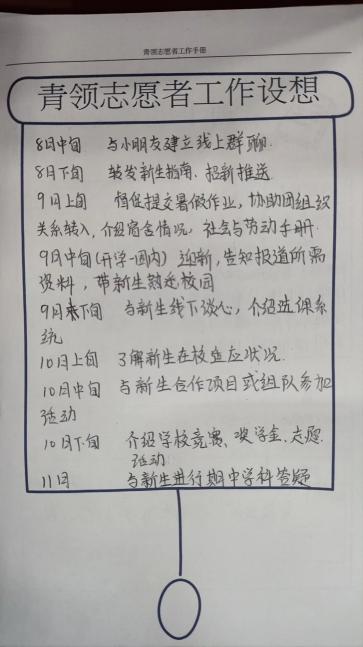 青领志愿者工作手册
青领志愿者工作设想
8月中旬 与小朋友建立线上群聊.
8月下旬 转发新生指南、招新推送
9月上旬 督促提交暑假作业,协助团组织
关系转入,介绍宿舍情况,社会与劳动手册.
9月中旬(开学一周内) 迎新,告知报道所需
资料,带新生熟悉校园
9月下旬 与新生线下谈心,介绍选课系
统
10月上旬 了解新生在校适应状况.
10月中旬 与新生合作项目或组队参加
活动
10月下旬 介绍学校竞赛、奖学金、志愿
活动
11月 与新生进行期中学科答疑